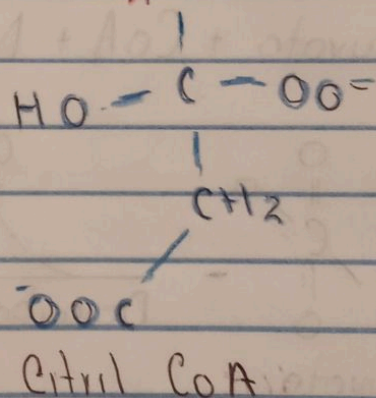 HO - C - OO⁻
CH2
⁻OOC
Citril CoA